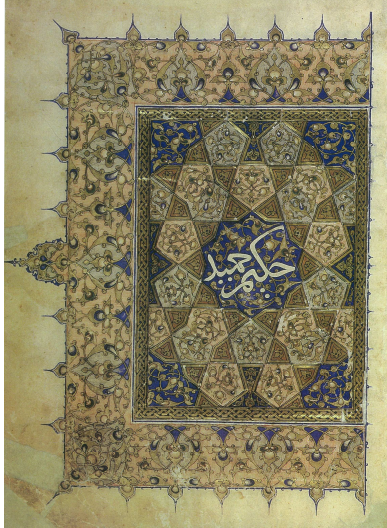 حكيم حميد